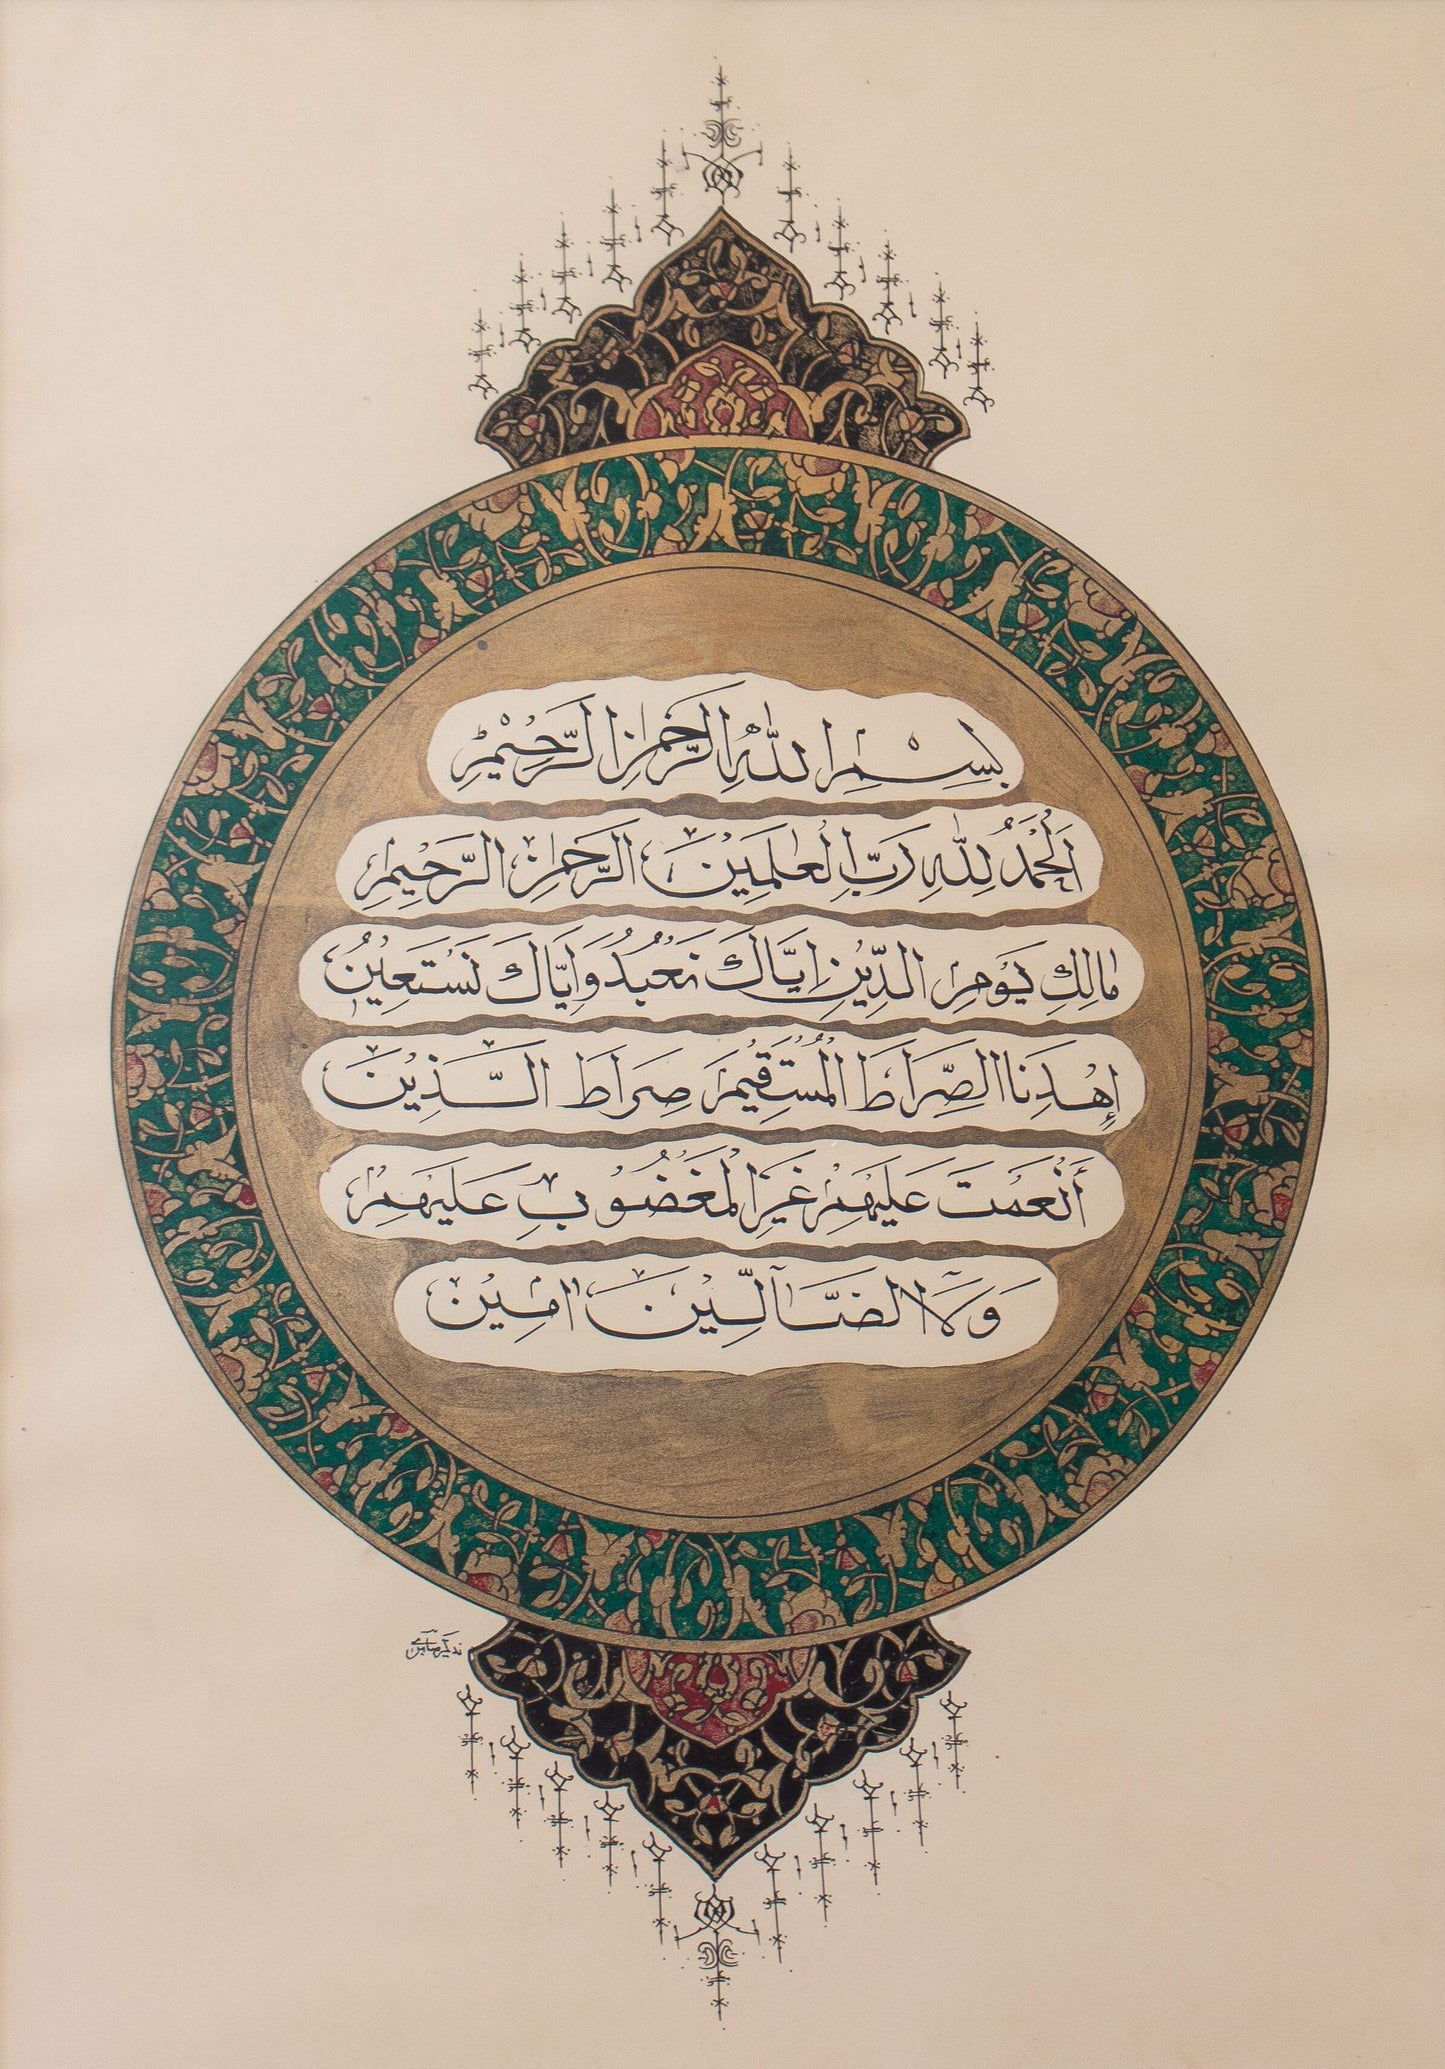 بِسْمِ اللّٰهِ الرَّحْمٰنِ الرَّحِيْمِ
اَلْحَمْدُ لِلّٰهِ رَبِّ الْعٰلَمِيْنَ الرَّحْمٰنِ الرَّحِيْمِ
مٰالِكِ يَوْمِ الدِّيْنِ اِيَّاكَ نَعْبُدُ وَاِيَّاكَ نَسْتَعِيْنُ
اِهْدِنَا الصِّرَاطَ الْمُسْتَقِيْمَ صِرَاطَ الَّذِيْنَ
أَنْعَمْتَ عَلَيْهِمْ غَيْرِ الْمَغْضُوْبِ عَلَيْهِمْ
وَلَا الضَّآلِّيْنَ اٰمِيْن